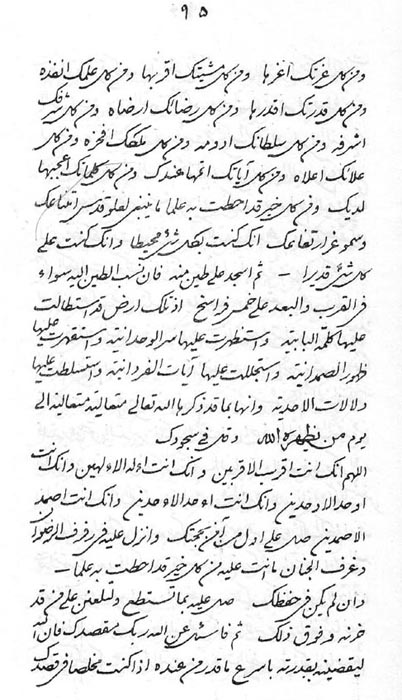 ٩٥
ومن كل عزتك اعزها ومن كل مشيتك اقربها ومن كل علمك انفذه
ومن كل قدرتك اقدرها ومن كل رضائك ارضاه ومن كل شرفك
اشرفه ومن كل سلطانك ادومه ومن كل ملكك افخره ومن كل
علائك اعلاه ومن كل آياتك اتمها عندك ومن كل كلماتك اعجبها
لديك ومن كل خير قد احطت به علما ما ينبغى لعلو قدس امتناعك
وسمو عز ارتفاعك انك كنت بكل شئ محيطا وانك كنت على
كل شئ قديرا – ثم اسجد على طين منه فان نسب الطين اليه سواء
فى القرب والبعد على خمس فراسخ اذ تلك ارض قد استطالت
عليها كلمة البابية واستظهرت عليها سر الوحدانية واستقهرت عليها
ظهور الصمدانية واستجللت عليها آيات الفردانية واستسلطت عليها
دلالات الاحدية وانها بما قد ذكرها الله تعالى متعالية متعالية الى
يوم من يظهره الله وقل فى سجودك
اللهم انك انت اقرب الاقربين وانك انت اءله الاءلهين وانك انت
اوحد الاوحدين وانك انت اءحد الاءحدين وانك انت اصمد
الاصمدين صل على اول من آمن بحجتك وانزل عليه فى رفرف الرضوان
وغرف الجنان ما انت عليه من كل خير قد احطت به علما –
وان لم يكن فى حفظك صل عليه بما تستطع ولتلعنن على من قد
حزنه وفوق ذلك ثم فاسئل عن الله ربك مقصدك فان الله
ليقضينه بقدرته باسرع ما قدر من عنده اذا كنت مخلصا فى قصدك